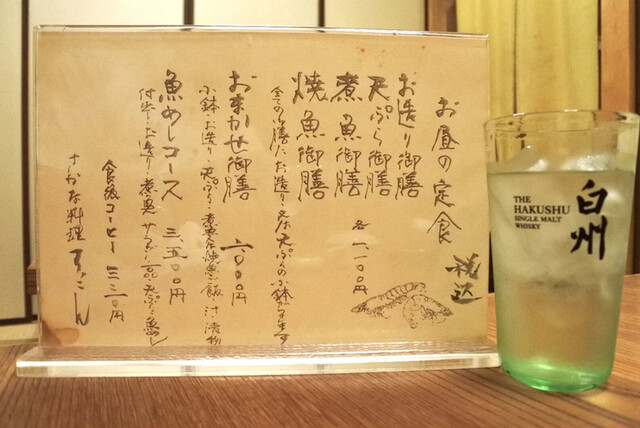 お昼の定食
税込
お造り御膳
天ぷら御膳
煮魚御膳
焼魚御膳
各 一、一〇〇円
全ての御膳にお造り又は天ぷらの小鉢が付きます
おまかせ御膳 二、〇〇〇円
小鉢・お造り・天ぷら・煮魚又は焼魚・ご飯・汁・漬物
魚めしコース 三、五〇〇円
付出し・お造り・煮魚・サラダ・一品・天ぷら・魚めし
食後コーヒー 三三〇円
さかな料理
THE
HAKUSHU
SINGLE MALT
WHISKY
白州